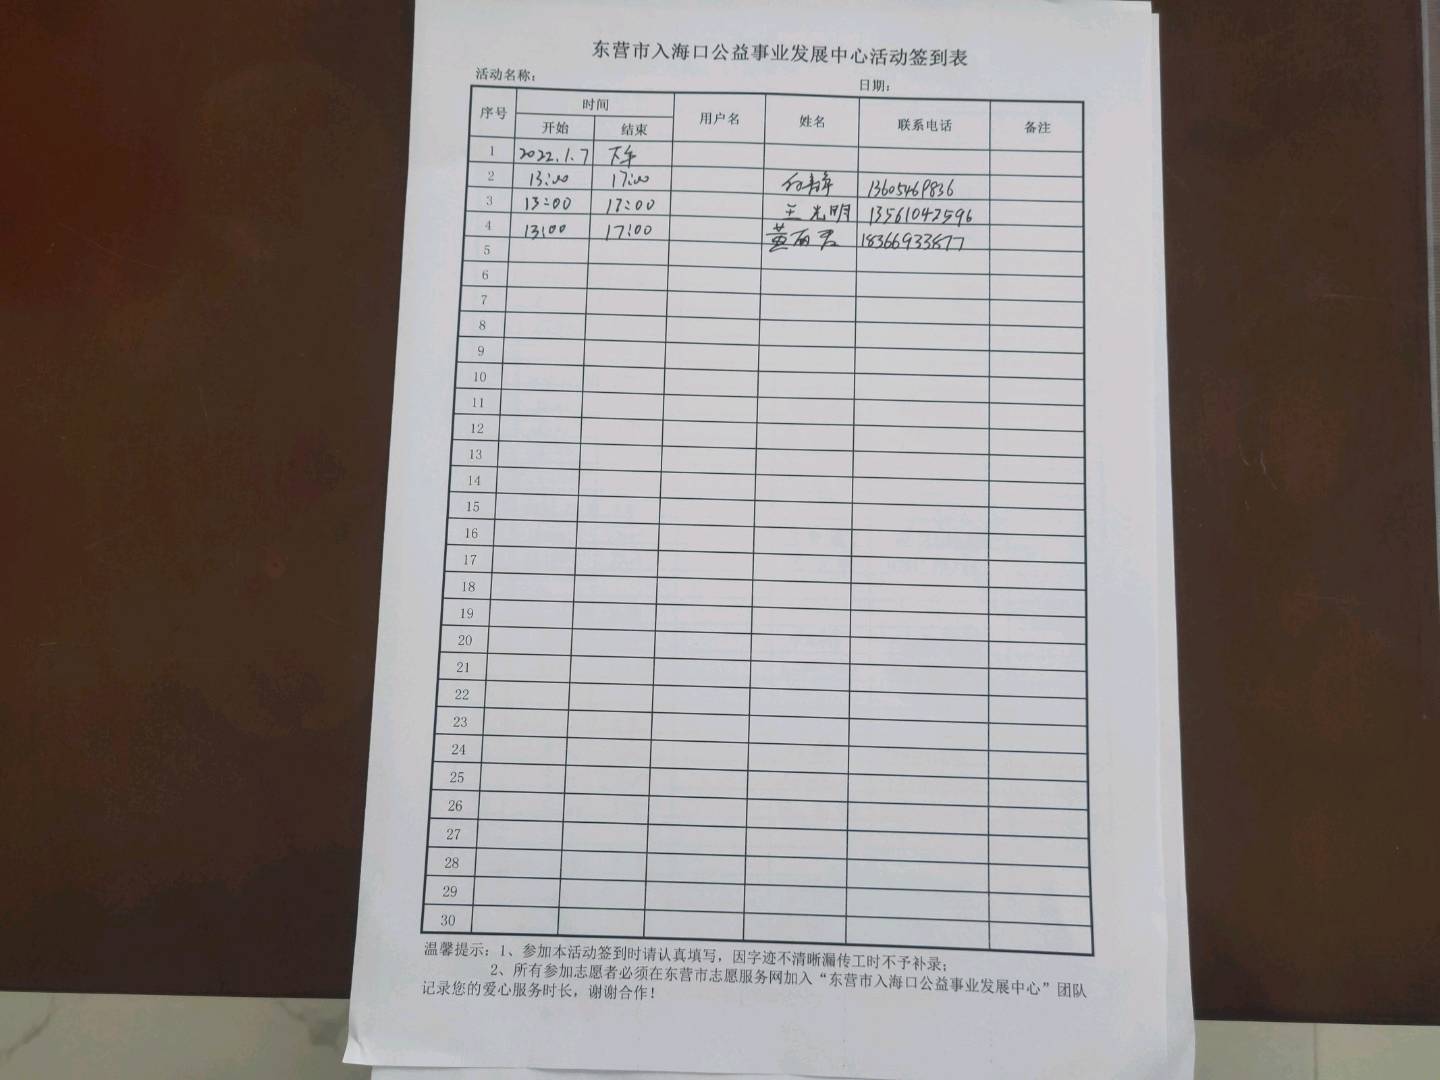 东营市入海口公益事业发展中心活动签到表
活动名称： 日期：
序号 时间 用户名 姓名 联系电话 备注
开始 结束
1 2022.1.7 下午
2 13:00 17:00 13605469836
3 13:00 17:00 王光明 13561047596
4 13:00 17:00 黄丽君 18366933877
5
6
7
8
9
10
11
12
13
14
15
16
17
18
19
20
21
22
23
24
25
26
27
28
29
30
温馨提示：1、参加本活动签到时请认真填写，因字迹不清晰漏传工时不予补录；
2、所有参加志愿者必须在东营市志愿服务网加入“东营市入海口公益事业发展中心”团队
记录您的爱心服务时长，谢谢合作！